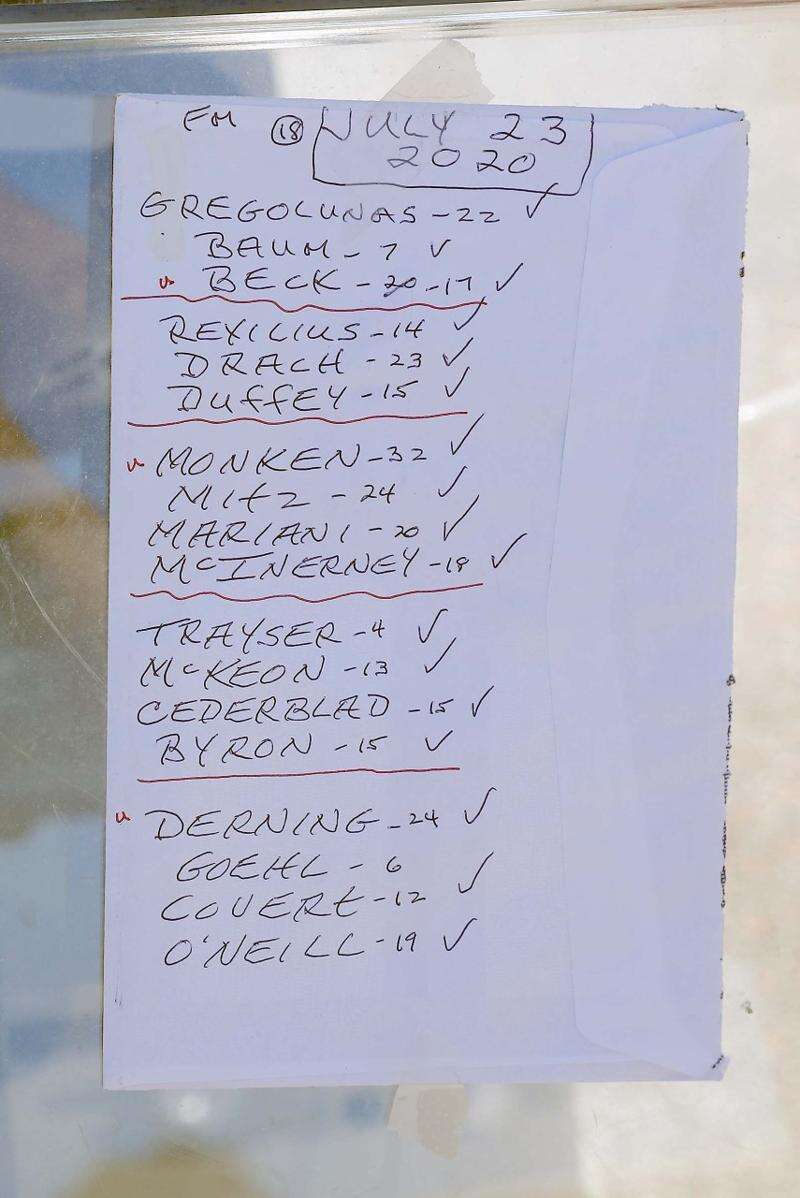 FM (18) JULY 23
2020
GREGOLUNAS - 22 ✓
BAUM - 7 ✓
BECK - 20 - 17 ✓
REXILIUS - 14 ✓
DRACH - 23 ✓
DUFFEY - 15 ✓
MONKEN - 32 ✓
MITZ - 24 ✓
MARIANI - 20 ✓
McINERNEY - 18 ✓
TRAYSER - 4 ✓
McKEON - 13 ✓
CEDERBLAD - 15 ✓
BYRON - 15 ✓
DERNING - 24 ✓
GOEHL - 6
COVERT - 12 ✓
O'NEILL - 19 ✓